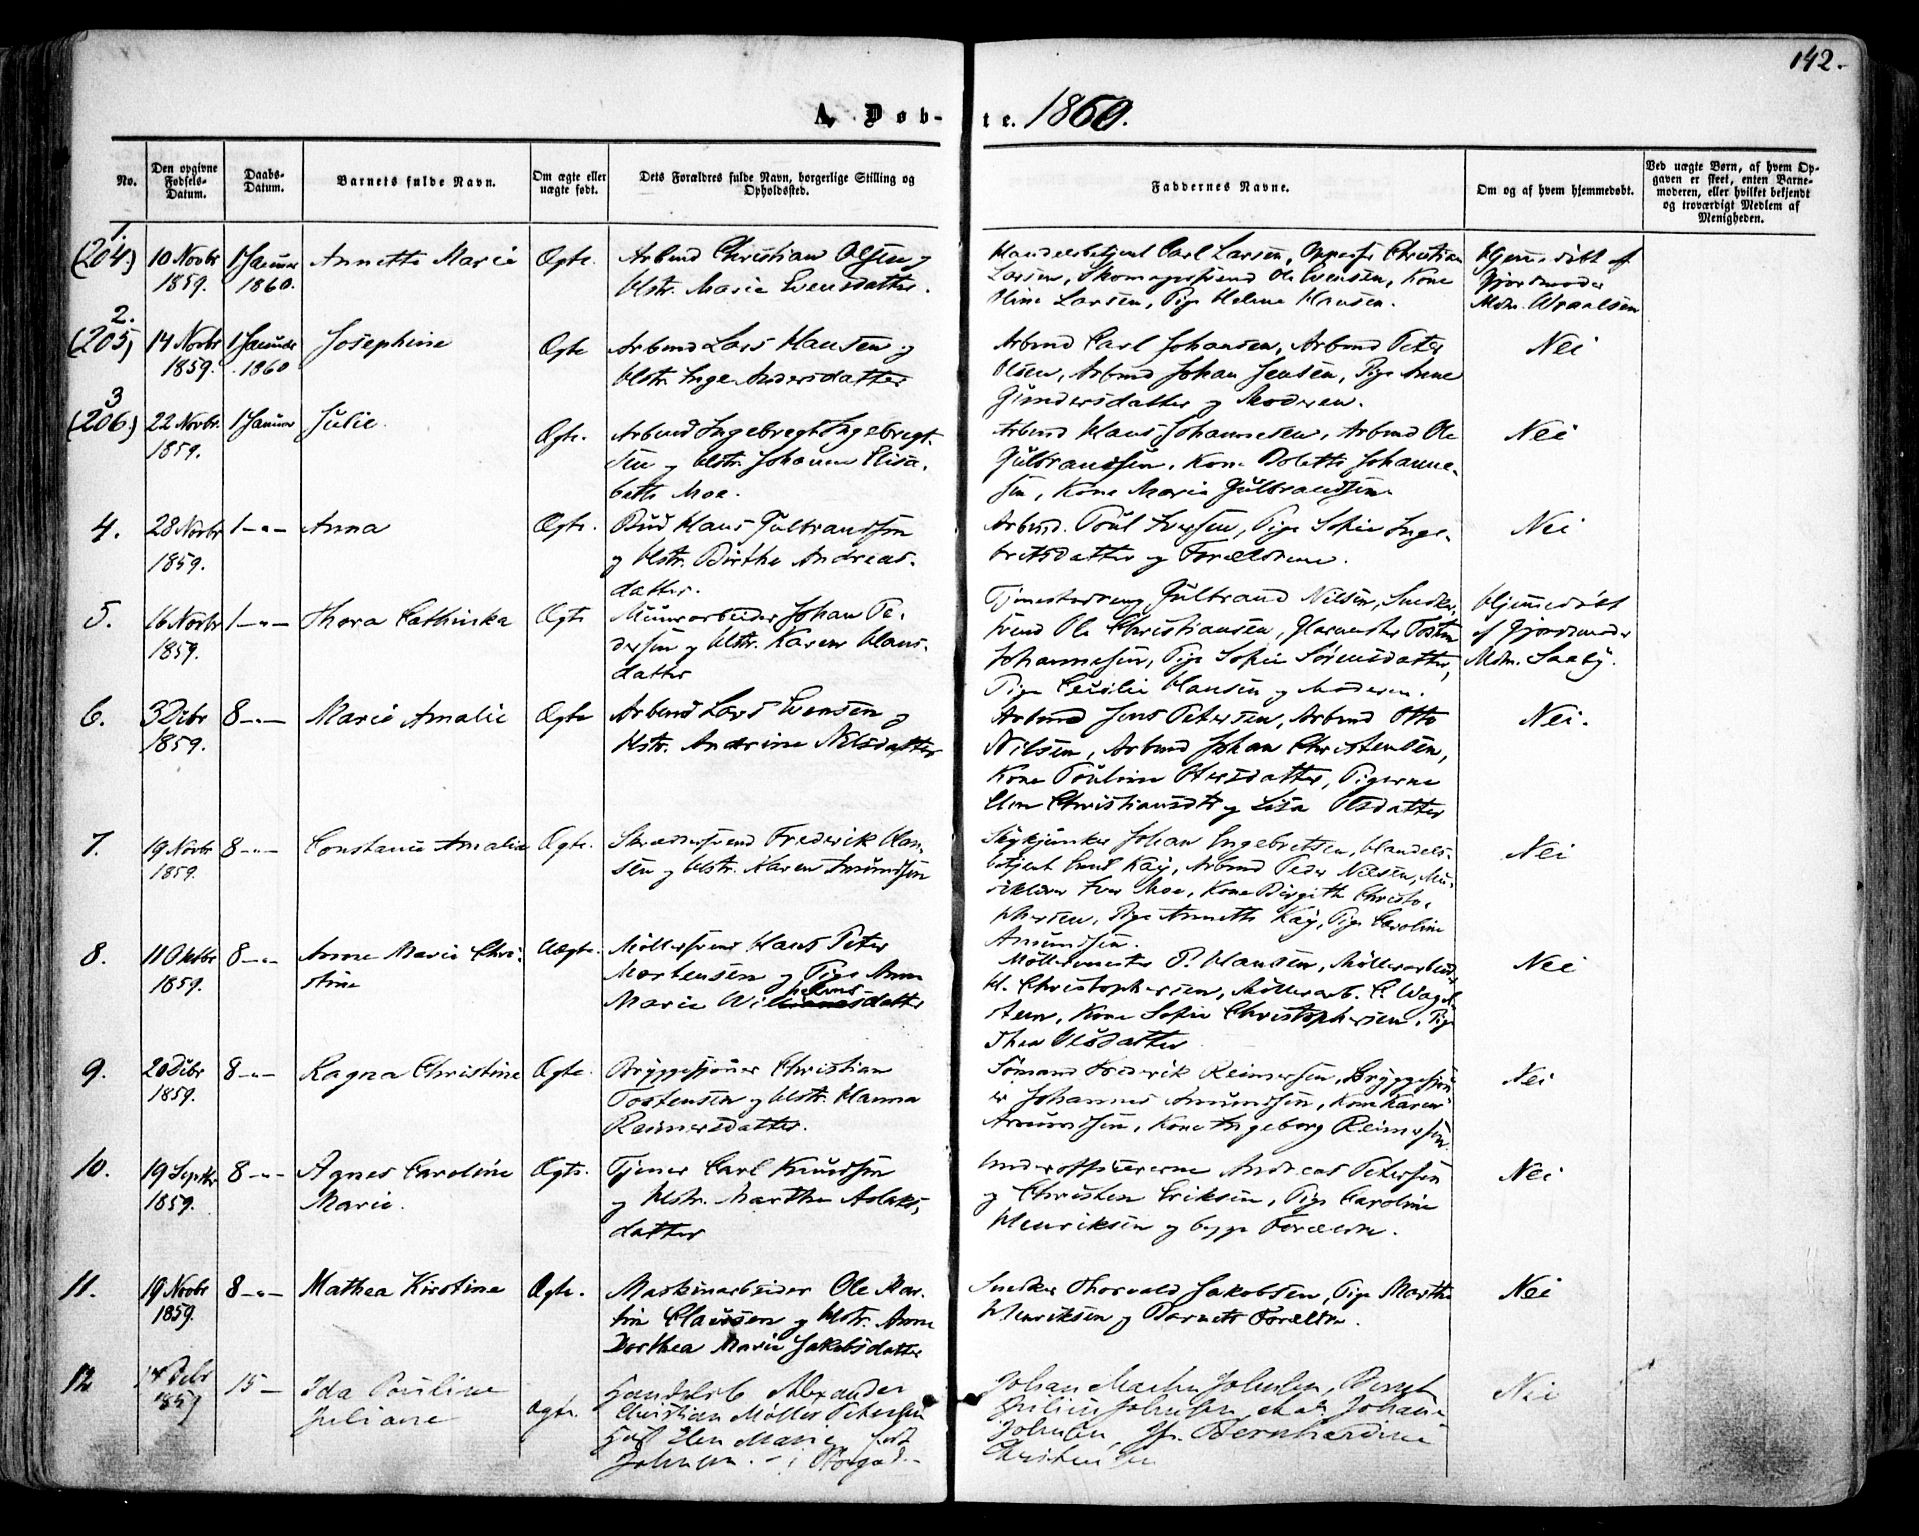 142.
A. Døb- te. 1860.
No.
Den opgivne Fødsels-Datum.
Daabs-Datum.
Barnets fulde Navn.
Om ægte eller uægte født.
Dets Forældres fulde Navn, borgerlige Stilling og Opholdssted.
Faddernes Navne.
Om og af hvem hjemmedøbt.
Ved uægte Børn, af hvem Opgaven er skeet, enten Barnemoderen, eller hvilket bekjendt og troværdigt Medlem af Menigheden.
1.
(204) 10 Novbr 1 Januar Annette Marie Ægte. Arbmd Christian Olsen og Handelsbetjent Carl Larsen, Christian Hjemmedøbt af
1859. 1860. Hstr. Marie Evensdatter. Larsen, Ole Evensen, Kone Gjordmoder
Oline Larsen, Pige Helene Hansen. Mdm. Wraalsen
2.
(205) 14 Novbr 1 Januar Josephine Ægte Arbmd Lars Hansen og Arbmd Carl Johansen, Arbmd Peter Nei
1859. 1860 Hstr. Inge Andersdatter Olsen, Arbmd Johan Jensen, Pige Anne
Gundersdatter og Moderen.
3
(206.) 22 Novbr. 1 Januar Julie Ægte. Arbmd Ingebregt Ingebregt- Arbmd Hans Johannesen, Arbmd Ole Nei
1859. sen og Hstr. Johanne Elisa- Gulbrandsen, Kone Bolette Johanne-
beth Moe. sen, Kone Marie Gulbrandsen
4. 28 Novbr 1 – " – Anna Ægte. Bud Hans Gulbrandsen Arbmd. Poul Iversen, Pige Sofie Inge- Nei
1859. og Hstr. Birthe Andreas- britsdatter og Forældrene.
datter.
5. 16 Novbr 1 – " – Thora Cathinka Ægte Muurarbeider Johan Pe- Gulbrand Nilsen, Snedker- Hjemmedøbt
1859. dersen og Hstr. Karen Hans- svend Ole Christiansen, Johannesen, Pige Sofie Sørensdatter, af Gjordmoder
datter Pige Cecilie Hansen og Moderen. Mdm. Saaby.
6. 3 Dcbr 8 – " – Marie Amalie Ægte Arbmd Lars Evensen og Arbmd Jens Petersen, Arbmd Otto Nei.
1859. Hstr. Andrine Nilsdatter Nilsen, Arbmd Johan Christensen,
Kone Pouline Pigerne
Christiansdtr og Lisa Olsdatter
7. 19 Novbr 8 – " – Constance Amalia Ægte. Skræddersvend Frederik Han- Johan Ingebretsen, Handels- Nei
1859. sen og Hstr. Karen Amundsen betjent Emil Kaÿ, Arbmd Peder Nilsen, Mu-
Iver Moe, Kone Birgithe Christo-
phersen, Pige Annette Kaÿ, Pige Caroline
Amundsen.
8. 11 Oktbr 8 – " – Anne Marie Chri- Uægte. Møllersvend Hans Peter Møllermester P. Hansen, Møllerarbeider Nei
1859. stine Mortensen og Pige Anne H. Christophersen, Møllerarb. C.
Marie Wilhelmsdatter Kone Sofie Christophersen, Pige
Thea Olsdatter
9. 20 Dcbr 8 – " – Ragna Christine Ægte. Bryggesjouer Christian Sømand Frederik Reimersen, Bryggesjou- Nei
1859. Tostensen og Hstr. Hanna er Johannes Amundsen, Kone Karen
Reimersdatter. Amundsen, Kone Ingeborg Reimersen
10. 19 Septbr 8 – " – Agnes Caroline Ægte. Tjener Carl Knudsen Underofficererne Andreas Petersen Nei
1859. Marie. og Hstr. Marthe Aslaks- og Christen Eriksen, Pige Caroline
datter Henriksen og begge Forældre.
11. 19 Novbr 8 – " – Mathea Kirstine Ægte. Maskinarbeider Ole Mar- Snedker Thorvald Jakobsen, Pige Marthe Nei
1859. tin Claussen og Hstr. Anne Henriksen og Barnets Forældre.
Dorthea Marie Jakobsdatter
12 14 Dcbr 15 – Ida Pauline Ægte. Alexander Johan Martin Johnsen, Nei
1859 Juliane Christian Møller Petersen Julius Johnsen Johanne
Elen Marie født Johnsen, Bernhardine
Johnsen. – Christensen